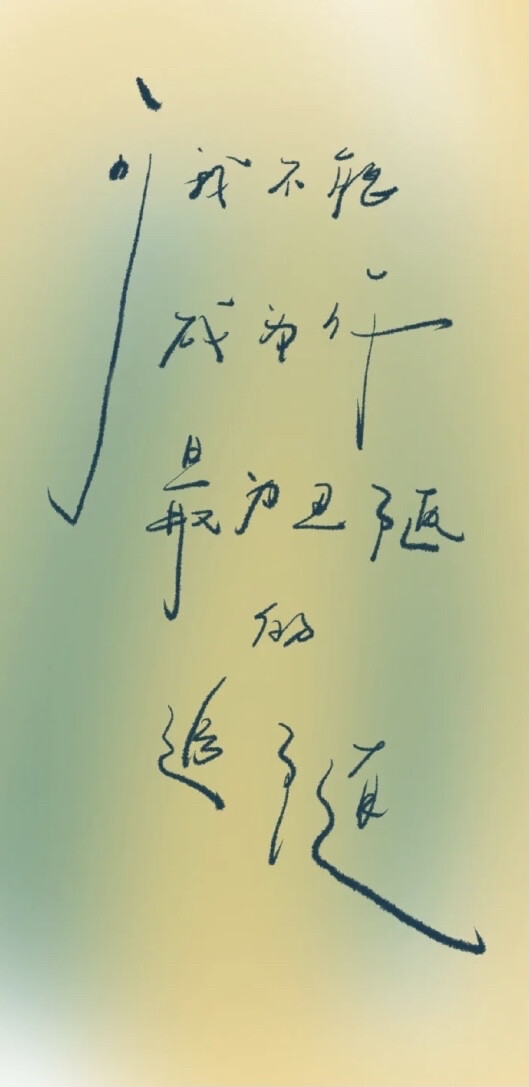 我不能
成为你
最为丑陋
的
追随